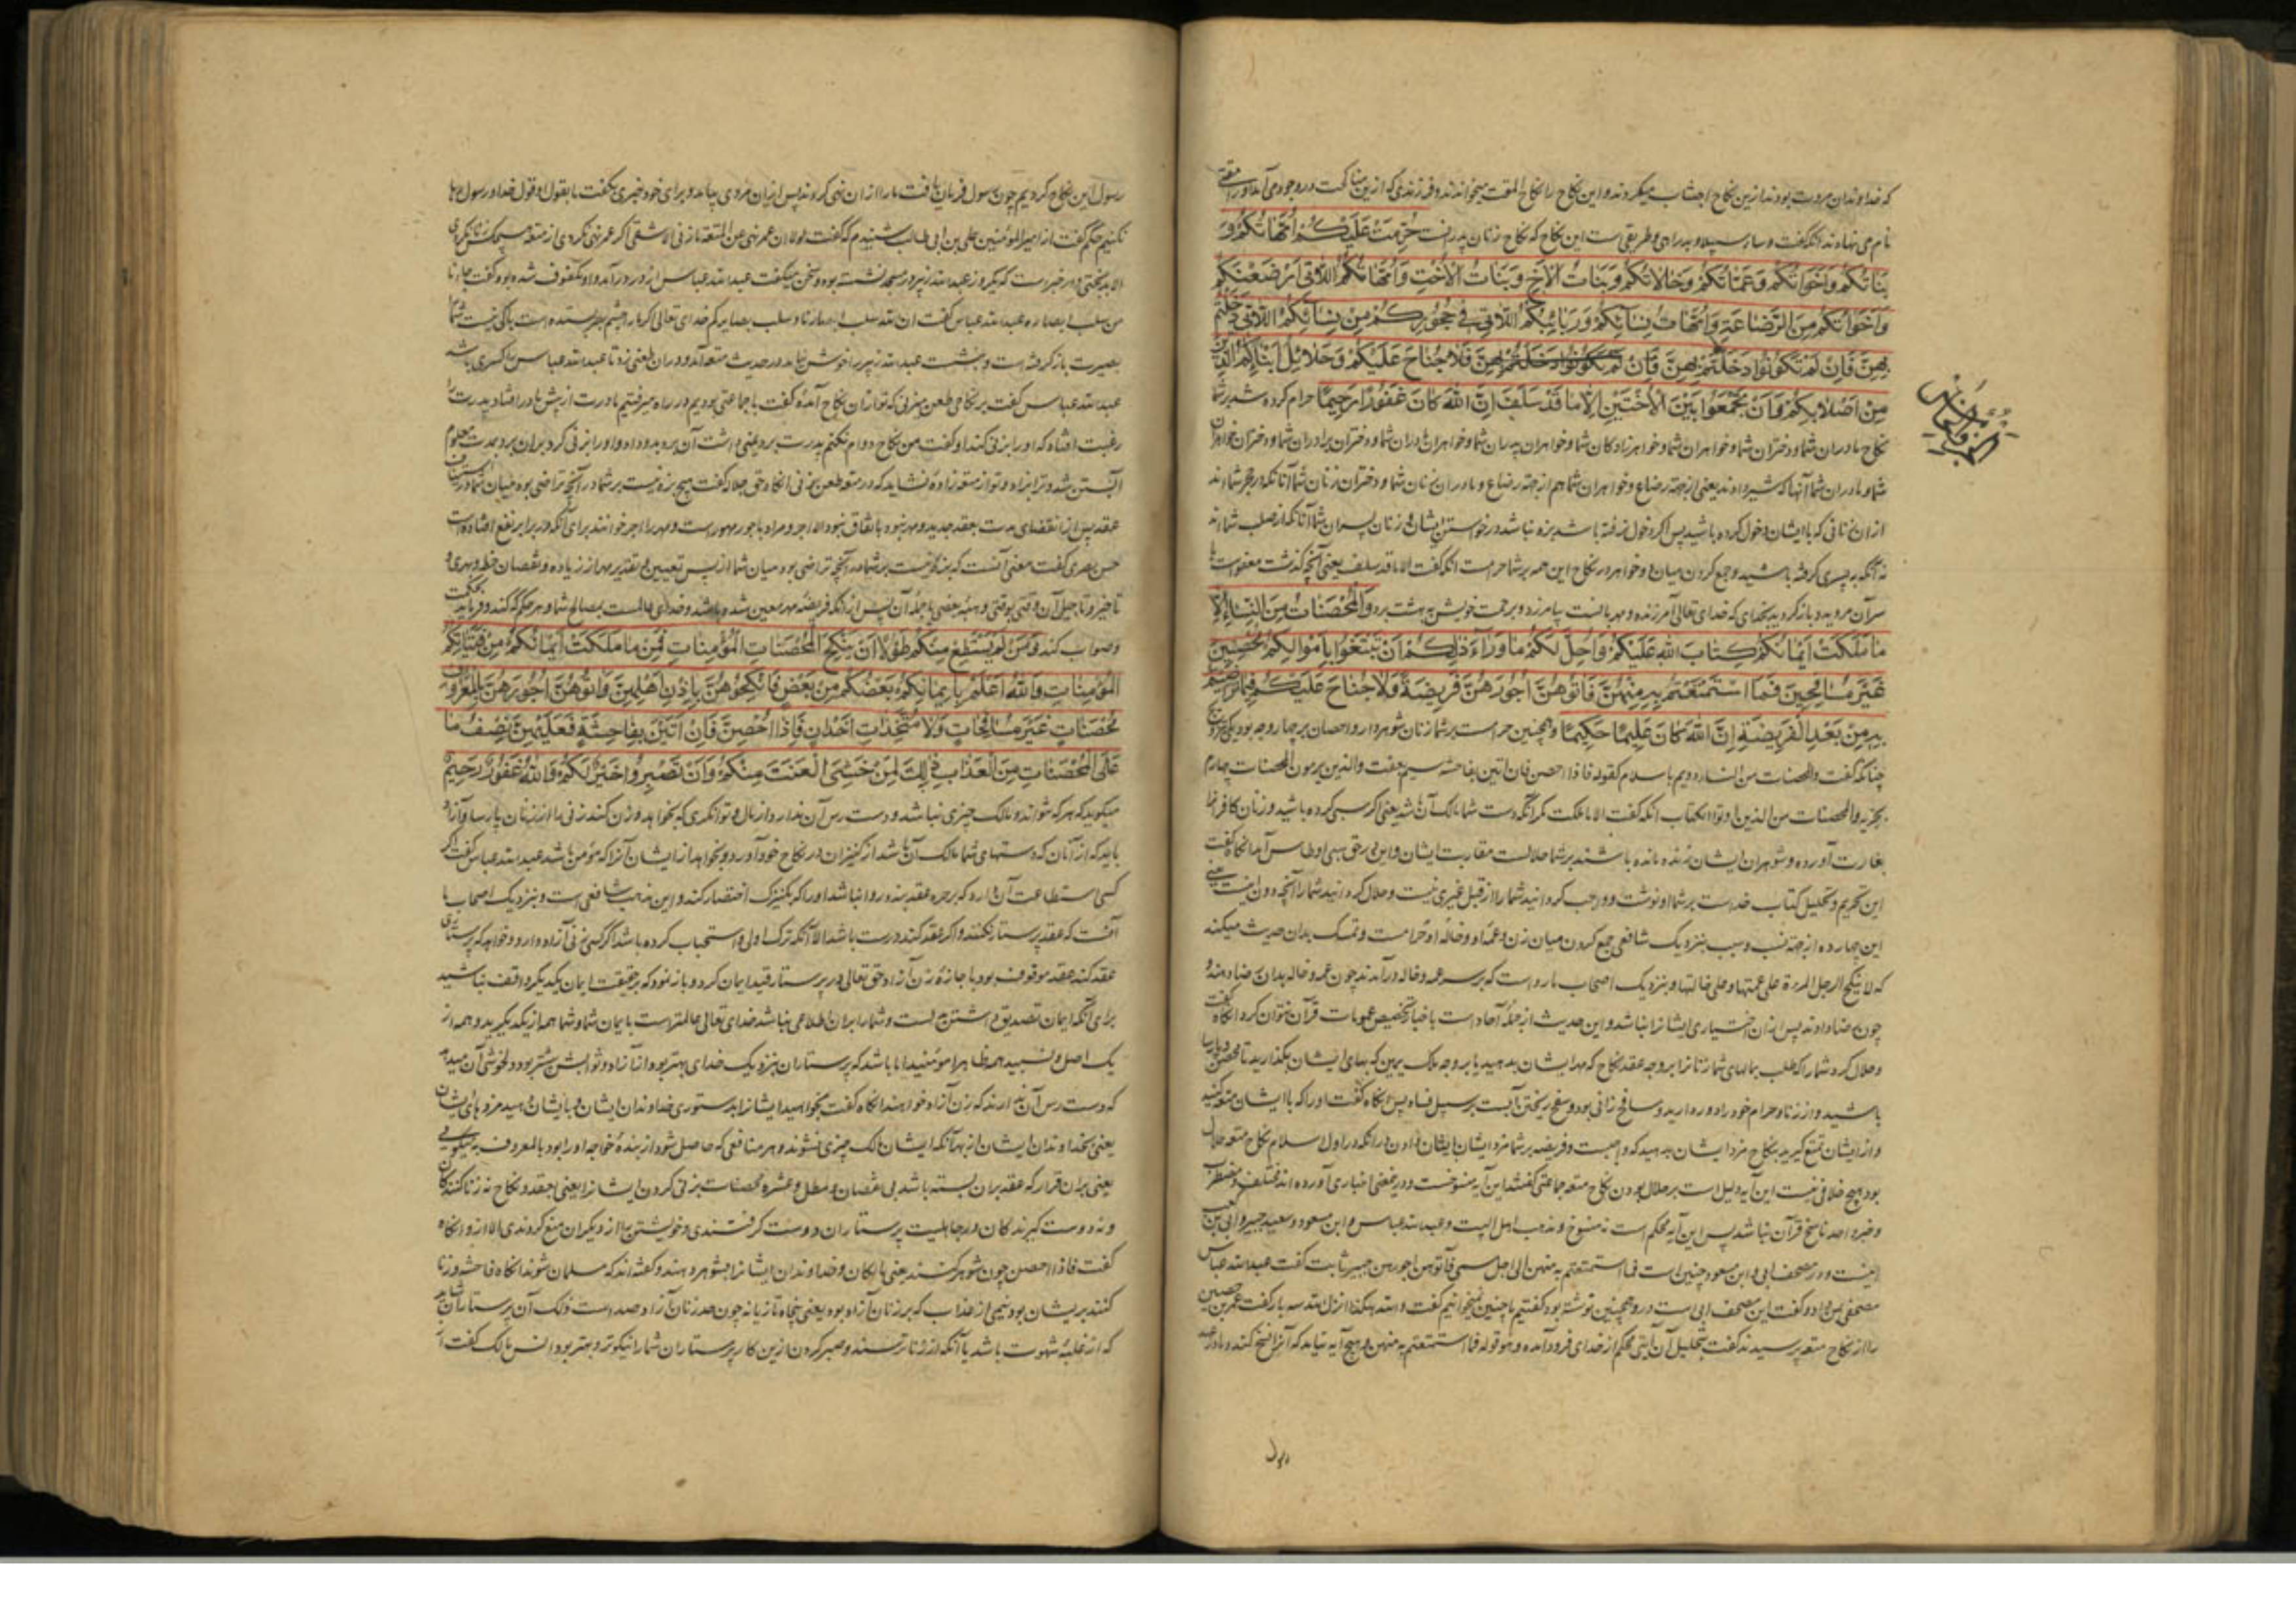 که خداوندان مروت بودند ازین نکاح اجتناب میکردند و این نکاح را نکاح المقت میخواندند و فرزندی که ازین مناکحت در وجود می آمد او را مقتی
نام می نهادند انکه گفت وساء سبیلا و بد راهی و طریقی است این نکاح که نکاح زنان پدر است حُرِّمَتْ عَلَيْكُمْ أُمَّهَاتُكُمْ وَ
بَنَاتُكُمْ وَأَخَوَاتُكُمْ وَعَمَّاتُكُمْ وَخَالَاتُكُمْ وَبَنَاتُ الْأَخِ وَبَنَاتُ الْأُخْتِ وَأُمَّهَاتُكُمُ اللَّاتِي أَرْضَعْنَكُمْ
وَأَخَوَاتُكُمْ مِنَ الرَّضَاعَةِ وَأُمَّهَاتُ نِسَائِكُمْ وَرَبَائِبُكُمُ اللَّاتِي فِي حُجُورِكُمْ مِنْ نِسَائِكُمُ اللَّاتِي دَخَلْتُمْ
بِهِنَّ فَإِنْ لَمْ تَكُونُوا دَخَلْتُمْ بِهِنَّ فَإِنْ لَمْ تَكُونُوا دَخَلْتُمْ بِهِنَّ فَلَا جُنَاحَ عَلَيْكُمْ وَحَلَائِلُ أَبْنَائِكُمُ الَّذِينَ
مِنْ أَصْلَابِكُمْ وَأَنْ تَجْمَعُوا بَيْنَ الْأُخْتَيْنِ إِلَّا مَا قَدْ سَلَفَ إِنَّ اللَّهَ كَانَ غَفُورًا رَحِيمًا حرام کرده شد بر شما
نکاح مادران شما و دختران شما و خواهران شما و خواهرزادکان شما و خواهران پدران شما و خواهران مادران شما و دختران برادران شما و دختران خواهران
شما و مادران شما آنها که شیر دادند یعنی از جهة رضاع و خواهران شما هم از جهة رضاع و مادران زنان شما و دختران زنان شما آنانکه در حجر شمااند
از ان زنانی که با ایشان دخول کرده باشید پس اکر دخول نرفته باشد بزه نباشد در خواستن ایشان و زنان پسران شما آنانکه از صلب شمااند
نه آنکه به پسری گرفته باشید و جمع کردن میان دو خواهر در نکاح این همه بر شما حرام است انکه گفت الا ما قد سلف یعنی آنچه گذشت معفو است
سر آن مروید و باز گردید بخدای که خدای تعالی آمرزنده و مهربانست بیامرزد و برحمت خویش به بهشت برد وَالْمُحْصَنَاتُ مِنَ النِّسَاءِ إِلَّا
مَا مَلَكَتْ أَيْمَانُكُمْ كِتَابَ اللَّهِ عَلَيْكُمْ وَأُحِلَّ لَكُمْ مَا وَرَاءَ ذَلِكُمْ أَنْ تَبْتَغُوا بِأَمْوَالِكُمْ مُحْصِنِينَ
غَيْرَ مُسَافِحِينَ فَمَا اسْتَمْتَعْتُمْ بِهِ مِنْهُنَّ فَآتُوهُنَّ أُجُورَهُنَّ فَرِيضَةً وَلَا جُنَاحَ عَلَيْكُمْ فِيمَا تَرَاضَيْتُمْ
بِهِ مِنْ بَعْدِ الْفَرِيضَةِ إِنَّ اللَّهَ كَانَ عَلِيمًا حَكِيمًا و همچنین حرام است بر شما زنان شوهردار و احصان بر چهار وجه بود یکی تزویج
چنانکه گفت والمحصنات من النساء دویم باسلام کقوله فاذا احصن فان اتین بفاحشه سیم بعفت والذین یرمون المحصنات چهارم
بحریه والمحصنات من الذین اوتوا الکتاب انکه گفت الا ما ملکت مگر آنکه دست شما مالک آن باشد یعنی اکر سبی کرده باشید و زنان کافر را
بغارت آورده و شوهران ایشان زنده مانده باشند بر شما حلالست مقاربت ایشان و این در حق سبی اوطاس آمد انکاه گفت
این تحریم و تحلیل کتاب خداست بر شما او نوشت و واجب کردانید شما را از قبل غیری نیست و حلال کردانید شما را آنچه دون اینست یعنی
این چهارده از جهة نسب و سبب بنزدیک شافعی جمع کردن میان زن و عمه او و خاله او حرامست و تمسک بدان حدیث میکند
که لا ینکح الرجل المرءة علی عمتها و علی خالتها و بنزدیک اصحاب ما رواست که بر سر عمه و خاله درآرند چون عمه و خاله بدان رضا دهند و
چون رضا دادند پس از ان اختیاری ایشانرا نباشد و این حدیث از جمله آحاد است باخبار تخصیص عمومات قرآن نتوان کرد انکاه گفت
و حلال کرد شما را که طلب بمالهای شما زنانرا بر وجه عقد نکاح که مهر ایشان بدهید یا بر وجه ملک یمین که بهای ایشان بگذارید تا محصن و پارسا
باشید و از زنا و حرام خود را دور دارید و مسافح زانی بود و سفح ریختن آبست بر سبیل فساد پس انکاه گفت اورا که با ایشان متعه کنید
و از ایشان تمتع گیرید بنکاح مزد ایشان بدهید که واجبست و فریضه بر شما مزد ایشان بایشان دادن و آنکه در اول اسلام نکاح متعه حلال
بود هیچ خلافی نیست این آیه دلیل است بر حلال بودن نکاح متعه جماعتی گفتند این آیه منسوخست و درین معنی اخباری آورده اند مختلف و مضطرب
و خبر واحد ناسخ قرآن نباشد پس این آیه محکم است نه منسوخ و مذهب اهل البیت و عبدالله عباس و ابن مسعود و سعید جبیر و ابی بن کعب
اینست و در مصحف ابی و ابن مسعود چنین است فما استمتعتم به منهن الی اجل مسمی فآتوهن اجورهن جبیر ثابت گفت عبدالله عباس
مصحفی بمن داد و گفت این مصحف ابی است درو همچنین نوشته بود گفتیم ما چنین نمیخوانیم گفت والله هکذا انزل الله سه بار گفت عمران حصین
را از نکاح متعه پرسیدند گفت بتحلیل آن آیتی محکم از خدای فرود آمده و هو قوله فما استمتعتم به منهن و هیچ آیه نیاید که آنرا نسخ کند و ما در عهد
رسول این نکاح کردیم چون رسول فرمان یافت ما را از ان نهی کردند پس از ان مردی بیامد و برای خود خبری بگفت ما بقول او قول خدا و رسول رها
نکنیم حکم گفت از امیرالمؤمنین علی بن ابی طالب شنیدم که گفت لولا ان عمر نهی عن المتعة ما زنی الا شقی اگر عمر نهی نکردی از متعه هیچکس زنا نکردی
الا بدبختی و در خبر است که یکروز عبدالله زبیر در مسجد نشسته بود و سخن میگفت عبدالله عباس از در درآمد و او مکفوف شده بود گفت جاءنا
من سلب ابصاره عبدالله عباس گفت ان الله سلب ابصارنا و سلب بصایرکم خدای تعالی اکر ما را چشم بصر بستده است باکی نیست شما را
بصیرت باز گرفته است و بنشست عبدالله زبیر را خوش نیامد در حدیث متعه آمد و در ان طعنی زد تا عبدالله عباس را کسری باشد
عبدالله عباس گفت بر نکاحی طعن میزنی که تو از ان نکاح آمدۀ گفت با جماعتی بودیم در راه میرفتیم مادرت از پیش ما در افتاد پدرت را
رغبت افتاد که او را بزنی کند او گفت من نکاح دوام نکنم پدرت بردیمنی داشت آن برد بدو داد و او را بزنی کرد بران برد بمدت معلوم
آبستن شد و ترا بزاد و تو از متعه زادۀ نشاید که در متعه طعن زنی انکاه حق جلاله گفت هیچ بزه نیست بر شما در آنچه تراضی بود میان شما در استیناف
عقد پس از انقضای مدت بعقد جدید و مهر نبود باتفاق نبود الا اجر و مراد باجور مهور است و مهر را اجر خوانند برای آنکه در برابر نفع افتاده است
حسن بصری گفت معنی آنست که بزه نیست بر شما در آنچه تراضی بود میان شما از پس تعیین و تقدیر مهر از زیاده و نقصان حط و مهری و
تاخیر و تاجیل آن وقتی بوقتی و هبه بعضی یا جمله آن پس از آنکه فریضه مهر معین شده باشد و خدای عالمست بمصالح شما و هر حکم که کند و فرماید بحکمت
و صواب کند وَمَنْ لَمْ يَسْتَطِعْ مِنْكُمْ طَوْلًا أَنْ يَنْكِحَ الْمُحْصَنَاتِ الْمُؤْمِنَاتِ فَمِنْ مَا مَلَكَتْ أَيْمَانُكُمْ مِنْ فَتَيَاتِكُمُ
الْمُؤْمِنَاتِ وَاللَّهُ أَعْلَمُ بِإِيمَانِكُمْ بَعْضُكُمْ مِنْ بَعْضٍ فَانْكِحُوهُنَّ بِإِذْنِ أَهْلِهِنَّ وَآتُوهُنَّ أُجُورَهُنَّ بِالْمَعْرُوفِ
مُحْصَنَاتٍ غَيْرَ مُسَافِحَاتٍ وَلَا مُتَّخِذَاتِ أَخْدَانٍ فَإِذَا أُحْصِنَّ فَإِنْ أَتَيْنَ بِفَاحِشَةٍ فَعَلَيْهِنَّ نِصْفُ مَا
عَلَى الْمُحْصَنَاتِ مِنَ الْعَذَابِ ذَلِكَ لِمَنْ خَشِيَ الْعَنَتَ مِنْكُمْ وَأَنْ تَصْبِرُوا خَيْرٌ لَكُمْ وَاللَّهُ غَفُورٌ رَحِيمٌ
میگوید که هر که نتواند و مالک چیزی نباشد و دست رس آن ندارد از مال و توانگری که بخواهد و زن کند زنی را از زنان پارسا و آزاد
باید که از آنان که دستهای شما مالک آن باشد از کنیزان در نکاح خود آورد و بخواهد از ایشان آنرا که مؤمن باشد عبدالله عباس گفت اکر
کسی استطاعت آن دارد که بر حره عقد بندد روا نباشد او را که بکنیزک اختصار کند و این مذهب شافعی است و بنزدیک اصحاب ما
آنست که عقد پرستار نکنند و اکر عقد کند درست باشد الا آنکه ترک اولی و استحباب کرده باشد اگر کسی زنی آزاد دارد و خواهد که پرستاری
عقد کند عقد موقوف بود باجازه زن آزاد حق تعالی در پرستار قید ایمان کرد و باز نمود که بر حقیقت ایمان یکدیگر واقف نباشید
برای آنکه ایمان تصدیق داشتن بدلست و شما را بران اطلاعی نباشد خدای تعالی عالمتر است بایمان شما و شما همه از یکدیگرید و همه از
یک اصل و نسبید همه ظاهرا مومنید اما باشد که پرستاران بنزدیک خدای بهتر بود از آزاد و ثوابش بیشتر بود و لخوشی آن میدهد
که دست رس آن ندارند که زن آزاد خواهند انکاه گفت بخواهید ایشانرا بدستوری خداوندان ایشان و بایشان دهید مزدهای ایشان
یعنی بخداوندان ایشان از بهر آنکه ایشان مالک چیزی نشوند و هر منافعی که حاصل شود از بنده خواجه او را بود بالمعروف به نیکویی
یعنی بران قرار که عقد بران بسته باشد بی نقصان و مطل و عشره محصنات بزنی کردن ایشانرا یعنی بعقد و نکاح نه زنا کنندکان
و نه دوست گیرندکان در جاهلیت پرستاران دوست گرفتندی و خویشتن را از دیگران منع کردندی الا ازو انکاه
گفت فاذا احصن چون شوهر کنند یعنی مالکان و خداوندان ایشانرا بشوهر دهند و گفته اند که مسلمان شوند انکاه فاحشه و زنا
کنند بر ایشان بود نیمی از عذاب که بر زنان آزاد بود یعنی پنجاه تازیانه چون حد زنان آزاد صد است ذلک آن پرستاران شاید
که از غلبه شهوت باشد یا آنکه از زنا ترسند و صبر کردن ازین کار پرستاران شما را نیکوتر و بهتر بود انس مالک گفت از
رسول